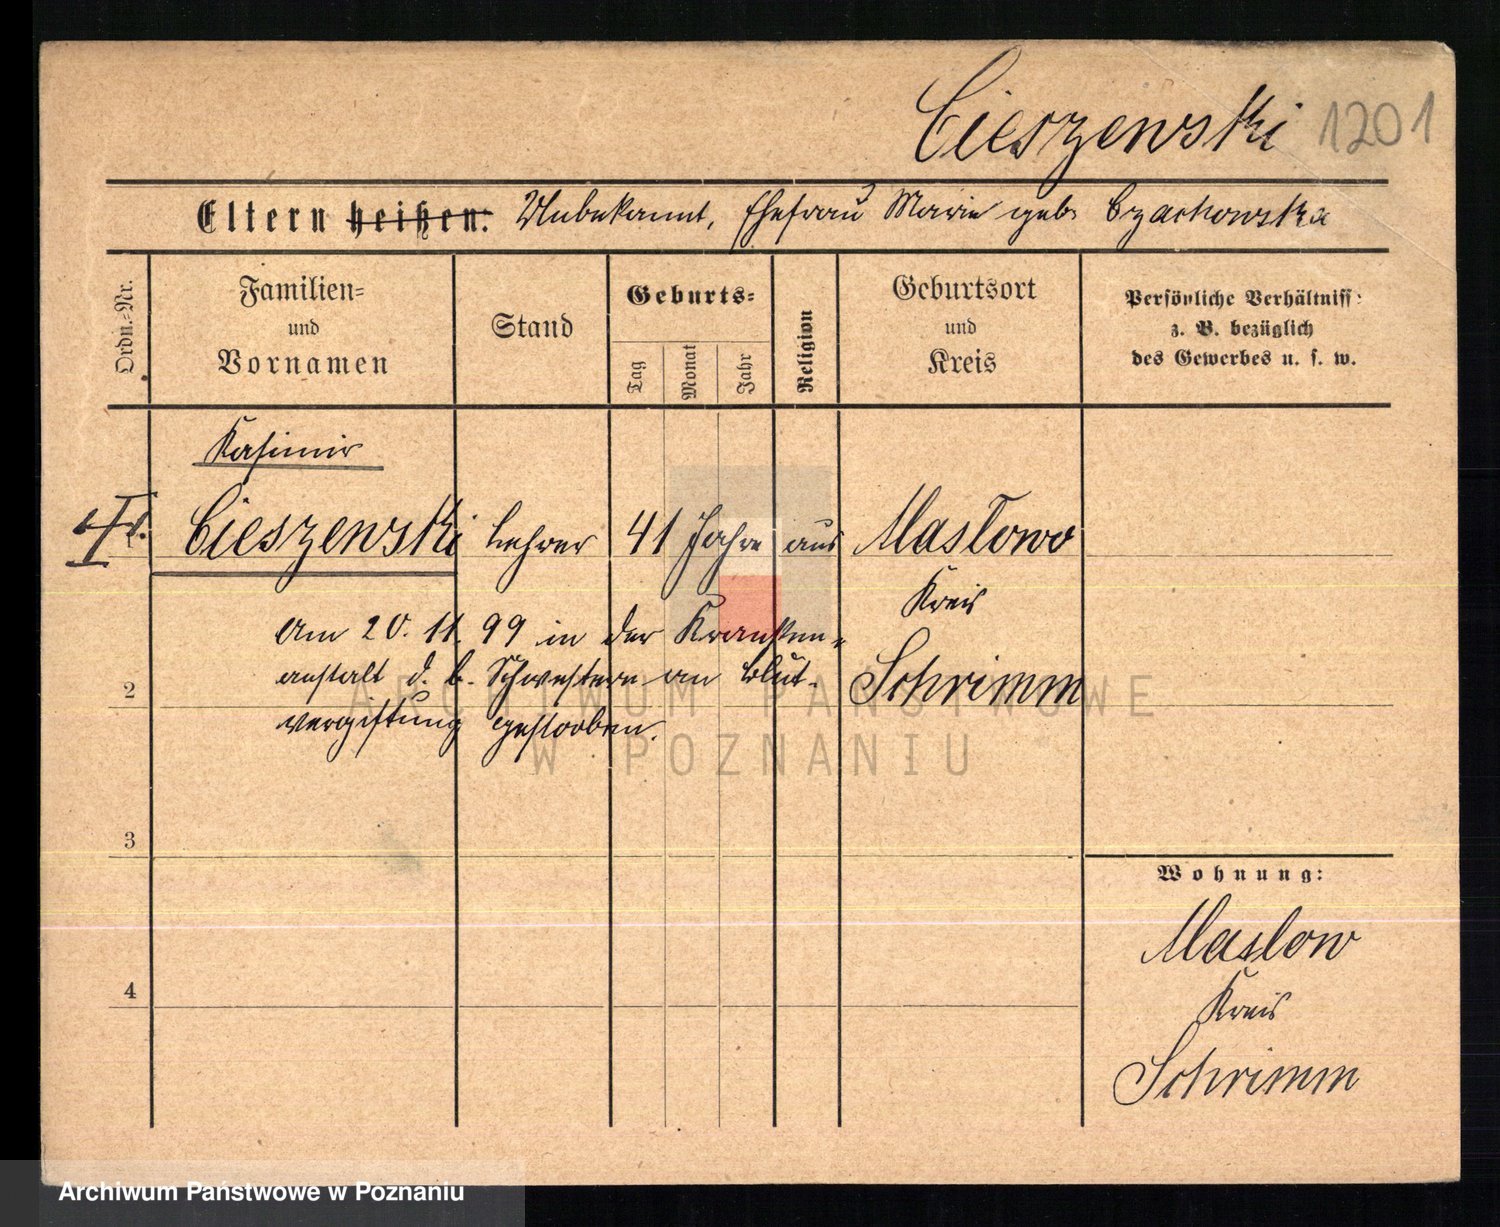 Cieszewski 1201
Eltern heißen: Unbekannt, Ehefrau Marie geb. Czachowska
Ordn.-Nr.
Familien-
und
Vornamen
Stand
Geburts-
Tag
Monat
Jahr
Religion
Geburtsort
und
Kreis
Persönliche Verhältniss:
z. B. bezüglich
des Gewerbes u. s. w.
Kasimir
Cieszewski Lehrer 41 Jahre aus Masłowo
Kreis
Schrimm
Am 20. 11. 99 in der Kranken-
anstalt d. b. Schwestern an Blut-
vergiftung gestorben.
2
3
4
Wohnung:
Maslow
Kreis
Schrimm
ARCHIWUM PAŃSTWOWE
W POZNANIU
Archiwum Państwowe w Poznaniu